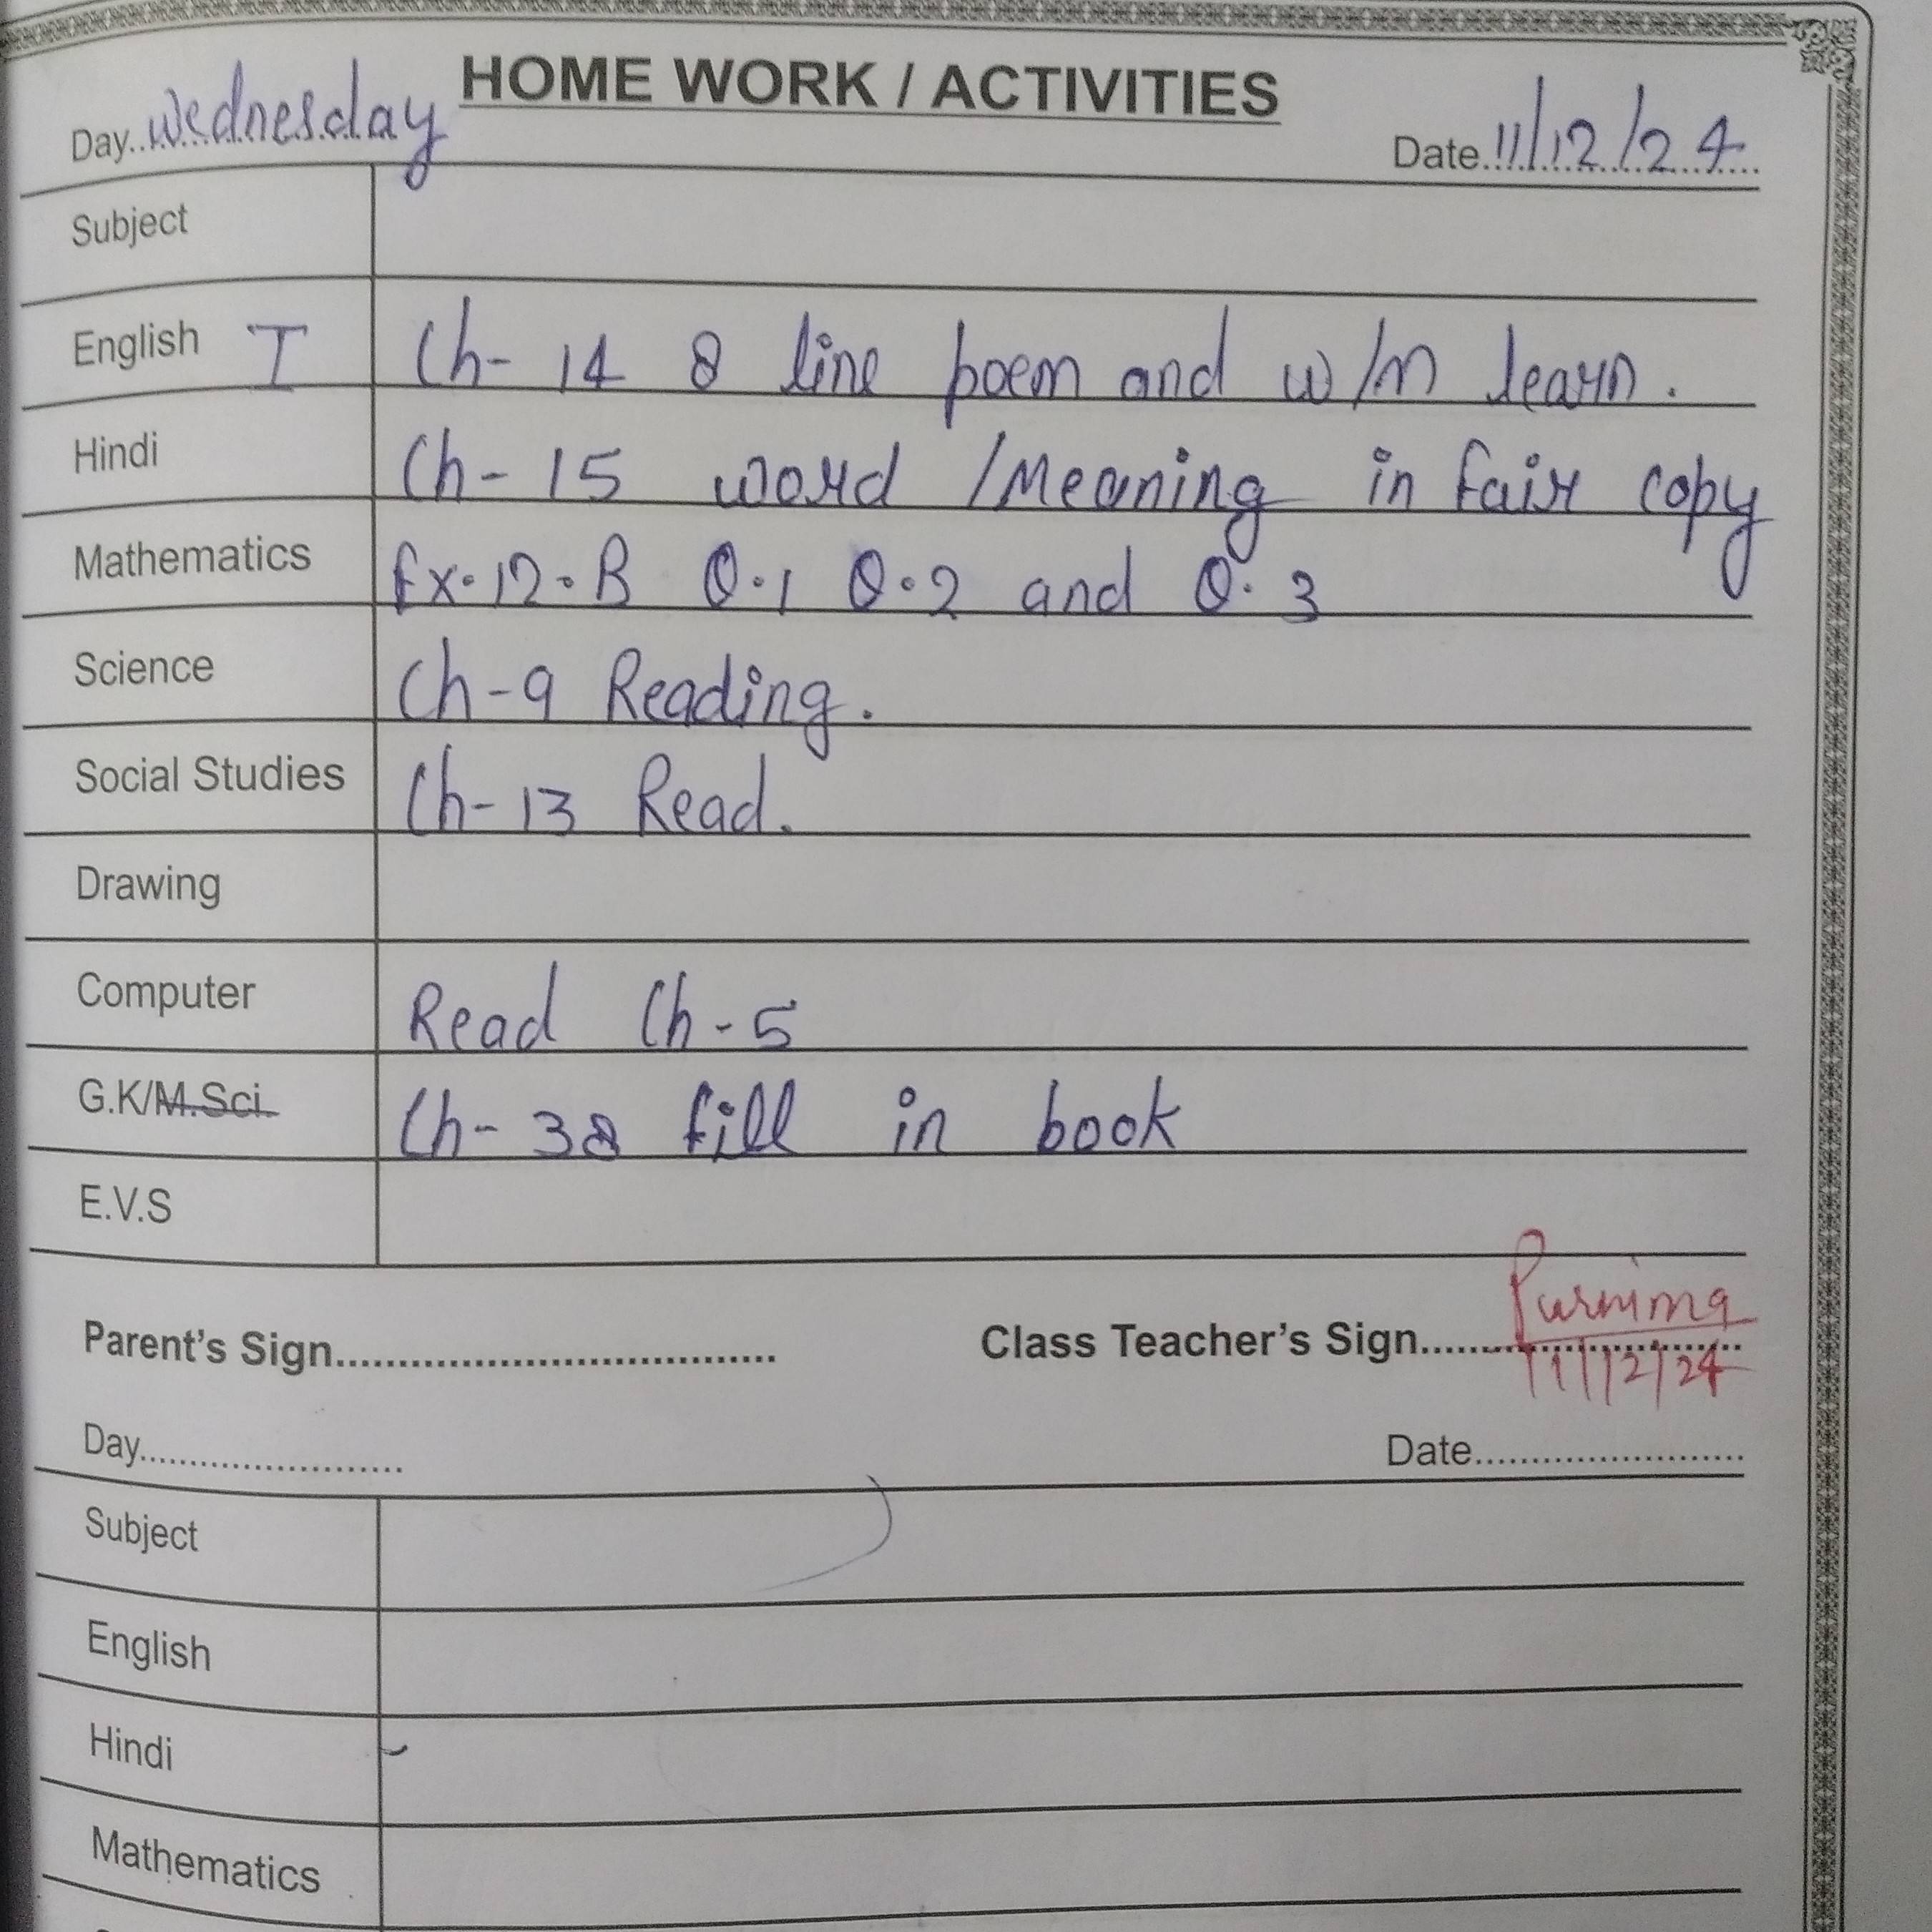 HOME WORK / ACTIVITIES
Day..Wednesday Date.11/12/24
Subject
English I Ch- 14 8 line poem and w/m learn.
Hindi Ch- 15 word /Meaning in fair copy
Mathematics Ex. 12. B Q.1 Q.2 and Q.3
Science Ch-9 Reading.
Social Studies Ch-13 Read.
Drawing
Computer Read Ch-5
G.K/M.Sci. Ch- 38 fill in book
E.V.S
Parent's Sign................................... Class Teacher's Sign.......Purnima
11/12/24
Day........................ Date........................
Subject
English
Hindi
Mathematics